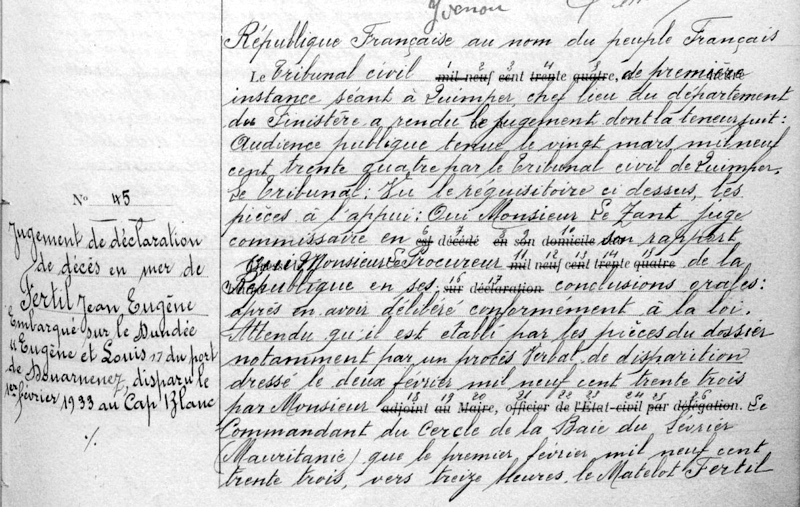 Yvenou
République Française au nom du peuple Français
Le Tribunal civil mil neuf cent trente quatre, de première
instance séant à Quimper, chef lieu du département
du Finistère a rendu le jugement dont la teneur suit:
Audience publique tenue le vingt mars, mil neuf
cent trente quatre par le Tribunal civil de Quimper.
Le Tribunal: Vu le réquisitoire ci dessus, les
pièces à l'appui: Oui Monsieur Le Zant, juge
commissaire en est décédé en son domicile son rapport
Oui Monsieur Le Procureur mil neuf cent trente quatre de la
République en ses: sur déclaration conclusions orales:
après en avoir délibéré conformément à la loi.
Attendu qu'il est etabli par les pièces du dossier
notamment par un procès Verbal de disparition
dressé le deux février mil neuf cent trente trois
par Monsieur adjoint au Maire, officier de l'Etat-civil par délégation. Le
Commandant du Cercle de la Baie du Lévrier
(Mauritanie) que le premier février mil neuf cent
trente trois, vers treize heures, le Matelot Fertil
N° 45
Jugement de déclaration
de décès en mer de
Fertil Jean Eugène
Embarqué sur le Dundée
"Eugène et Louis" du port
de Douarnenez, disparu le
1er février 1933 au Cap Blanc